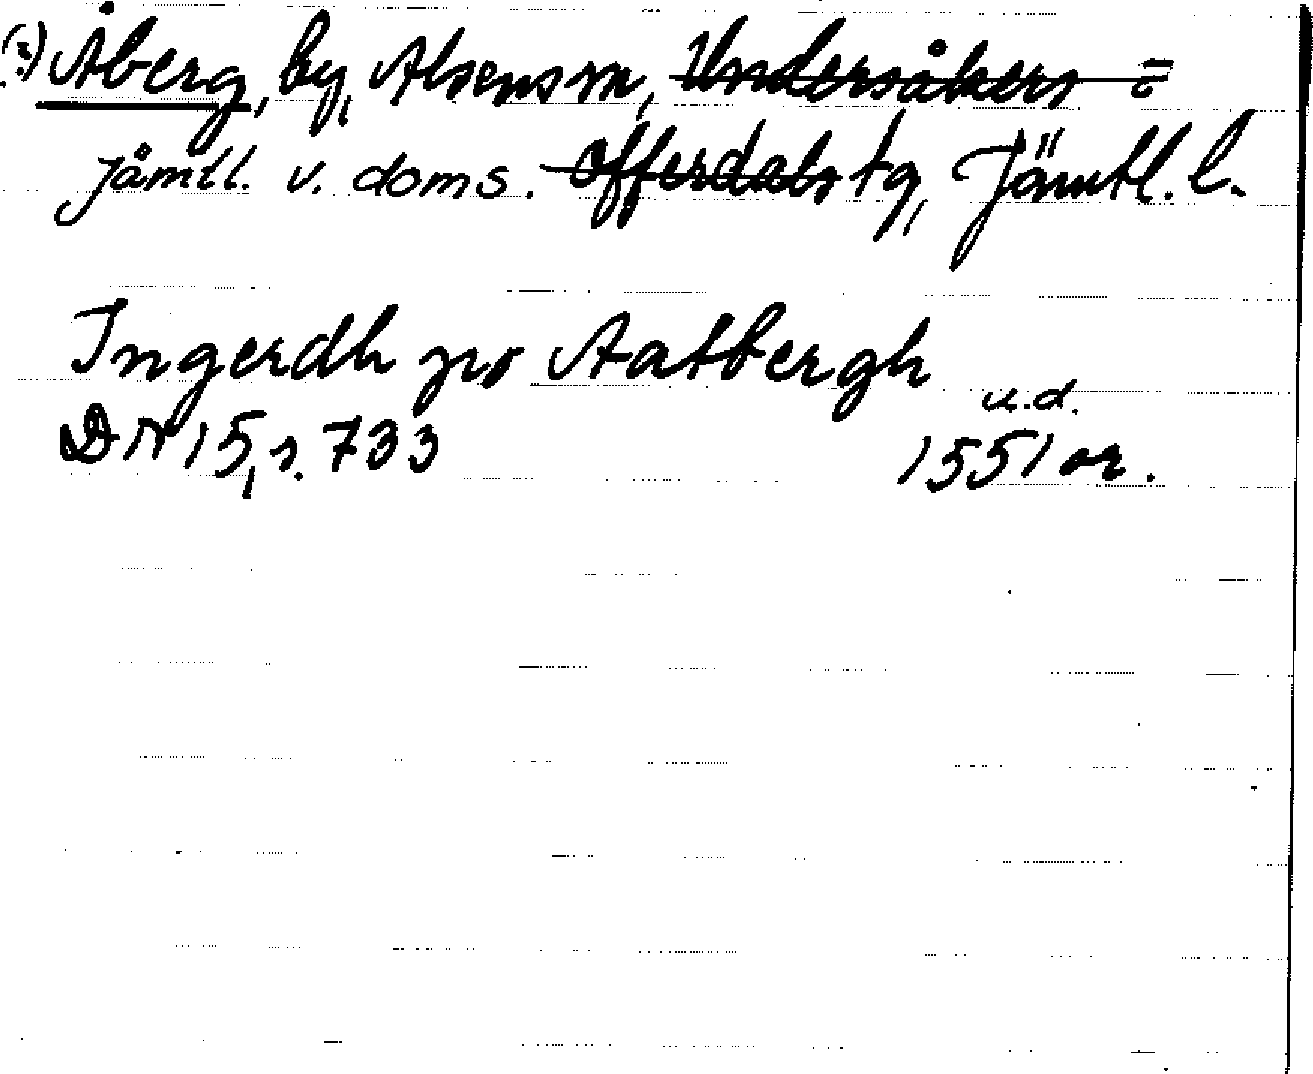 (?) Åberg, by, Alsens sn, Undersåkers =
Jämtl. v. doms. Offerdals tg, Jämtl. l.
Ingerdh på Aatbergh
u.d.
DN 15, s. 733 1551 or.